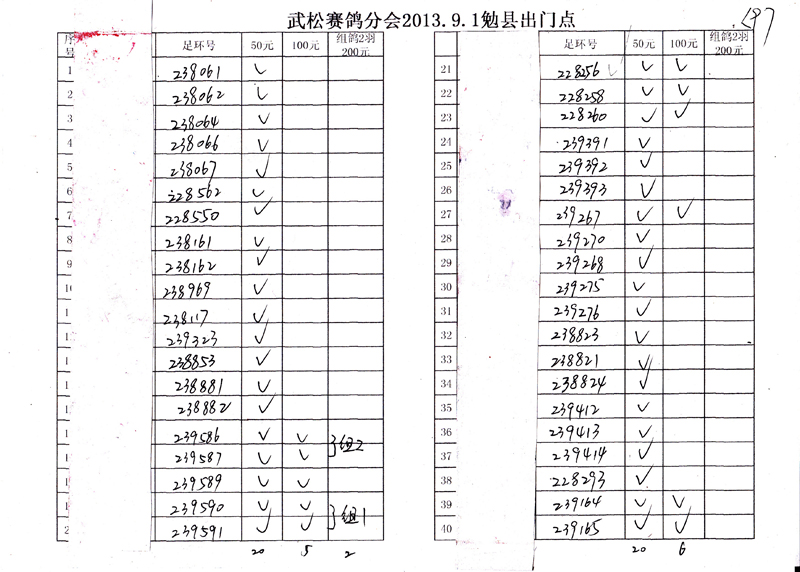 武松赛鸽分会2013.9.1勉县出门点
197
序号 足环号 50元 100元 组鸽2羽200元
1 238061 ✓
2 238062 ✓
3 238064 ✓
4 238066 ✓
5 238067 ✓
6 228562 ✓
7 228550 ✓
8 238161 ✓
9 238162 ✓
10 238969 ✓
1 238117 ✓
1 239323 ✓
1 238853 ✓
1 238881 ✓
1 238882 ✓
1 239586 ✓ ✓
1 239587 ✓ ✓ 组2
1 239589 ✓ ✓
1 239590 ✓ ✓
2 239591 ✓ ✓ 组1
20 5 2
足环号 50元 100元 组鸽2羽200元
21 228256 ✓ ✓
22 228258 ✓ ✓
23 228260 ✓ ✓
24 239391 ✓
25 239392 ✓
26 239393 ✓
27 239267 ✓ ✓
28 239270 ✓
29 239268 ✓
30 239275 ✓
31 239276 ✓
32 238823 ✓
33 238821 ✓
34 238824 ✓
35 239412 ✓
36 239413 ✓
37 239414 ✓
38 228293 ✓
39 239164 ✓ ✓
40 239165 ✓ ✓
20 6